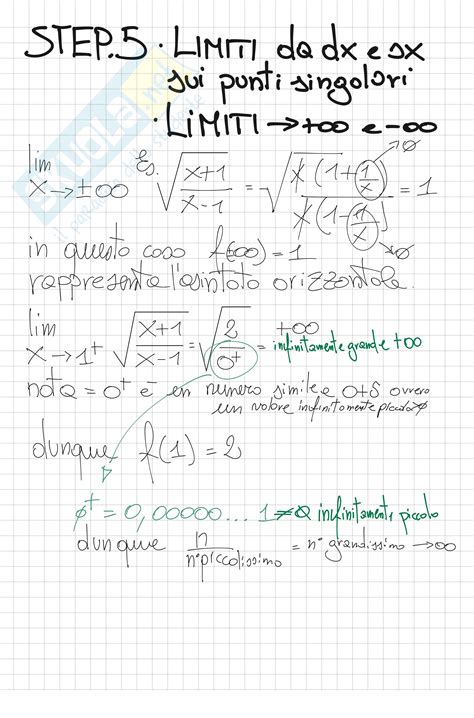 STEP.5 · LIMITI da dx e sx
sui punti singolari
· LIMITI → +∞ e -∞
lim x→±∞ Es. √((x+1)/(x-1)) = √((x(1+(1/x)))/(x(1-(1/x)))) = 1
→0
→0
in questo caso f(±∞) = 1
rappresenta l'asintoto orizzontale.
lim x→1⁺ √((x+1)/(x-1)) = √(2/0⁺) = +∞ infinitamente grande +∞
nota = 0⁺ è un numero simile a 0+δ ovvero
un valore infinitamente piccolo 0
dunque f(1) = 2
0⁺ = 0,00000... 1 ≠ 0 infinitamente piccolo
dunque n/n°piccolissimo = n° grandissimo → ∞
skuola.net